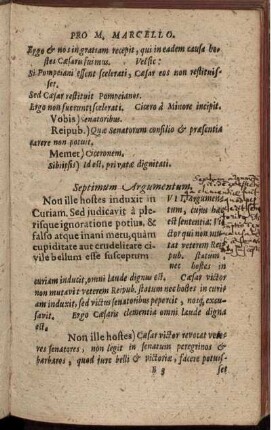 PRO M. MARCELLO.
Ergo & nos in gratiam recepit, qui in eadem causa hostes Cæsaris fuimus. Vel sic:
Si Pompeiani essent scelerati, Cæsar eos non restituisset.
Sed Cæsar restituit Pompeianos.
Ergo non fuerunt scelerati. Cicero à Minore incipit.
Vobis) Senatoribus.
Reipub.) Quæ Senatorum consilio & præsentia
carere non potuit.
Memet) Ciceronem.
Sibi ipsi) Id est, privatæ dignitati.
Septimum Argumentum.
Non ille hostes induxit in
Curiam. Sed judicavit à ple-
risque ignoratione potius, &
falso atque inani metu, quàm
cupiditate aut crudelitate ci-
vile bellum esse susceptum
VII. argumen-
tum, cujus hæc
est sententia: Vi-
ctor qui non mu-
tat veterem Rei-
pub. statum
nec hostes in
curiam induxit, omni laude dignus est. Cæsar victor
non mutavit veterem Reipub. statum nec hostes in curi-
am induxit, sed victus senatoribus pepercit,
Ergo Cæsaris clementia omni laude digna
est.
Non ille hostes) Cæsar victor revocat vete-
res senatores, non legit in senatum peregrinos &
barbaros, quod jure belli & victoriæ, facere potuis-
set